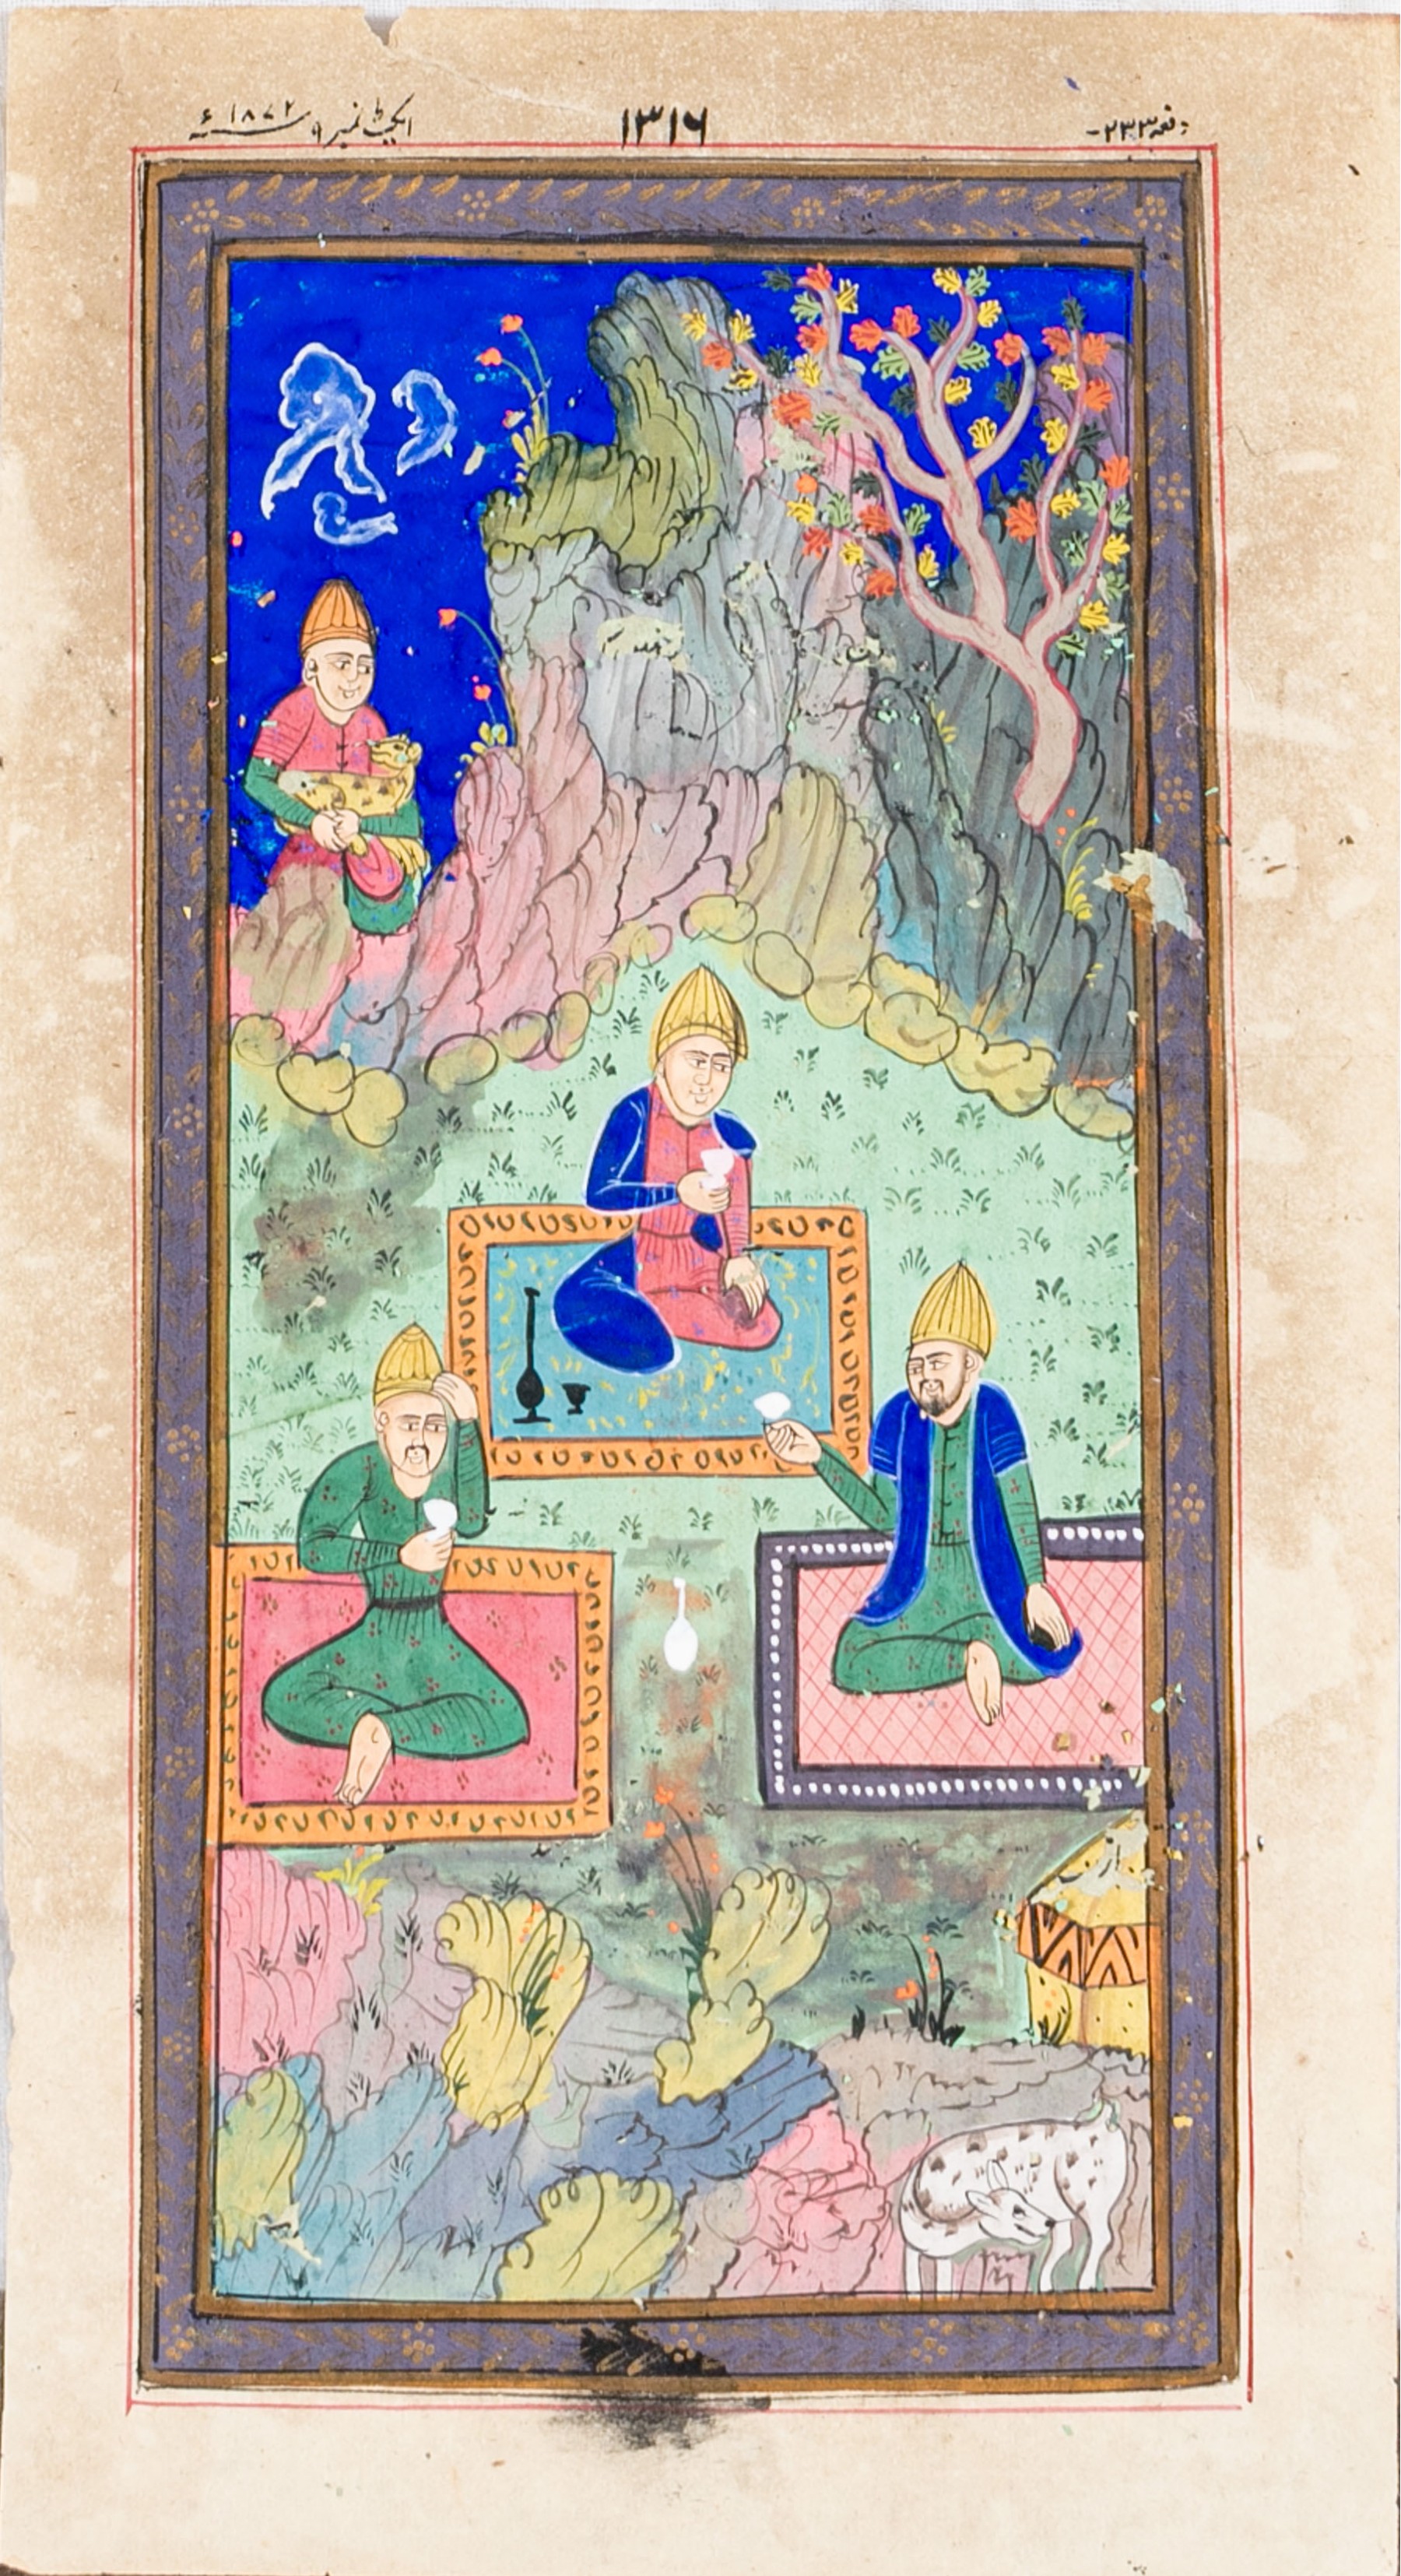 دفعہ ۲۳۳-
۱۳۱۶
ایکٹ نمبر ۹ ۱۸۷۲ء